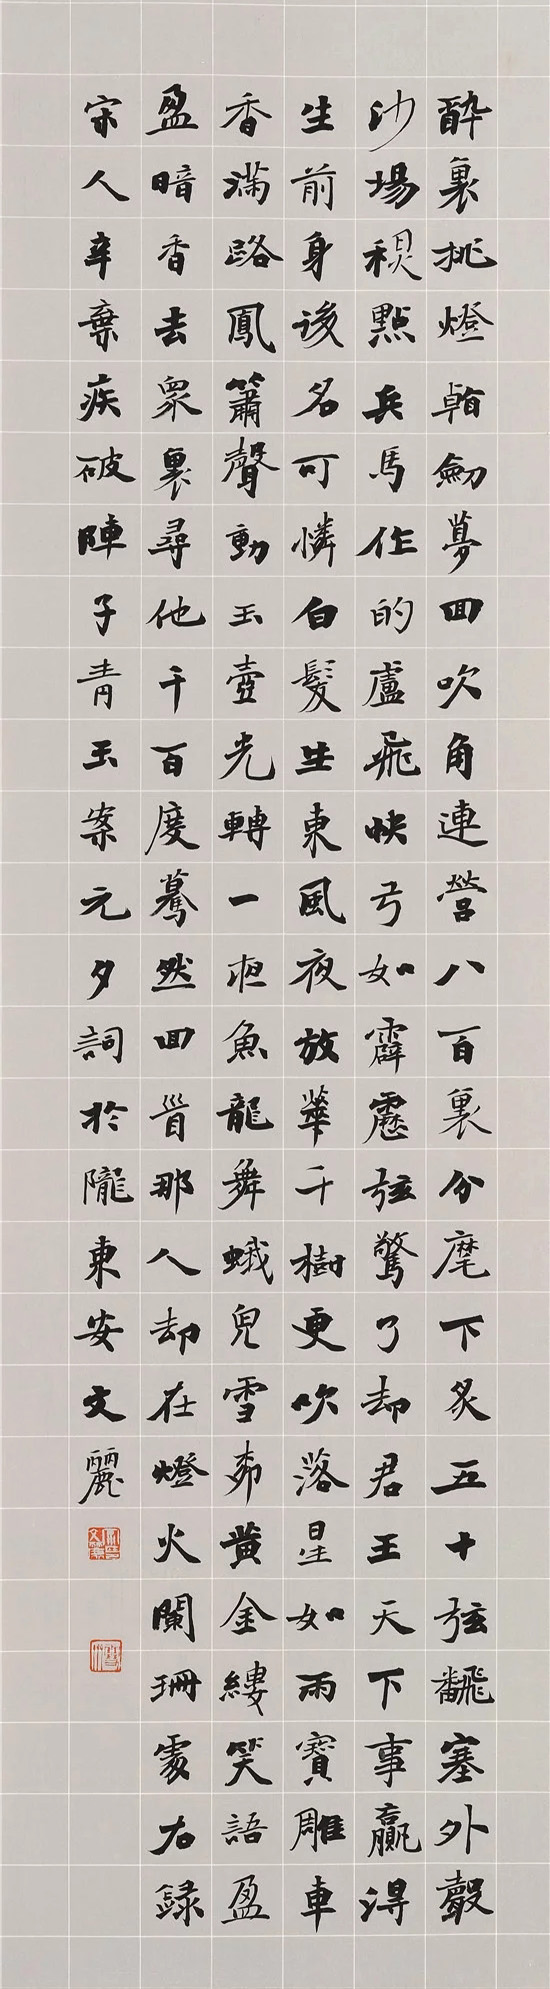 醉裏挑燈看劍夢回吹角連營八百裏分麾下炙五十弦飜塞外聲
沙場秋點兵馬作的盧飛快弓如霹靂弦驚了却君王天下事贏得
生前身後名可憐白髮生東風夜放華千樹更吹落星如雨寶雕車
香滿路鳳簫聲動玉壺光轉一夜魚龍舞蛾兒雪柳黃金縷笑語盈
盈暗香去眾裏尋他千百度驀然回首那人却在燈火闌珊處右録
宋人辛棄疾破陣子青玉案元夕詞於隴東安文麗